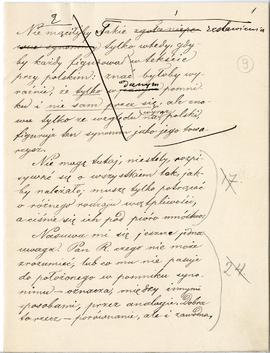 2
Nie
Takie zestawienia
synonimów tylko wtedy gdy-
by każdy figurował w tekście
przy polskim: znać byłoby wy-
raźnie, że tylko w danym pomni-
ku i nie sam przez się, ale zno-
wu tylko ze względu na polski,
figuruje ten synonim jako jego towa-
rzysz.
Nie mogę tutaj, niestety, rozpi-
sywać się o wszystkiem tak, jak-
by należało; muszę tylko potrącać
o różnego rodzaju wątpliwości,
a ciśnie się ich pod pióro mnóstwo.
Nasuwa mi się jeszcze jedna
uwaga. Pan R. czego nie może
zrozumieć, lub co mu nie pasuje
do położonego w pomniku syno-
nimu — oznacza, między innymi
sposobami, przez analogię. Dobra
to rzecz — porównanie, ale i zawodna.
9
17.
24